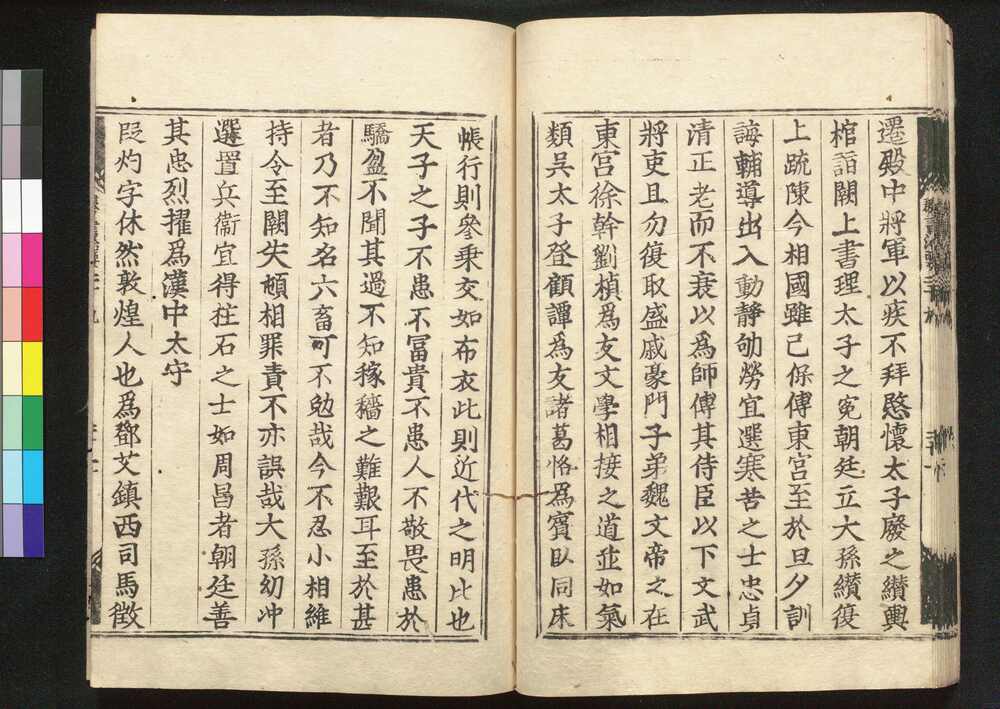 遷殿中將軍以疾不拜愍懷太子廢之纘輿
棺詣闕上書理太子之寃朝廷立大孫纘復
上疏陳今相國雖已保傅東宮至於旦夕訓
誨輔導出入動靜劬勞宜選寒苦之士忠貞
清正老而不衰以為師傅其侍臣以下文武
將吏且勿復取盛戚豪門子弟魏文帝之在
東宮徐幹劉楨為友文學相接之道並如氣
類吳太子登顧譚為友諸葛恪爲賓臥同床
帳行則參乗交如布衣此則近代之明比也
天子之子不患不冨貴不患人不敬畏患於
驕盈不聞其過不知稼穡之難艱耳至於甚
者乃不知名六畜可不勉哉今不忍小相維
持令至闕失頓相罪責不亦誤哉大孫幼冲
選置兵衞宜得柱石之士如周昌者朝廷善
其忠烈擢爲漢中太守
段灼字休然敦煌人也爲鄧艾鎮西司馬徵